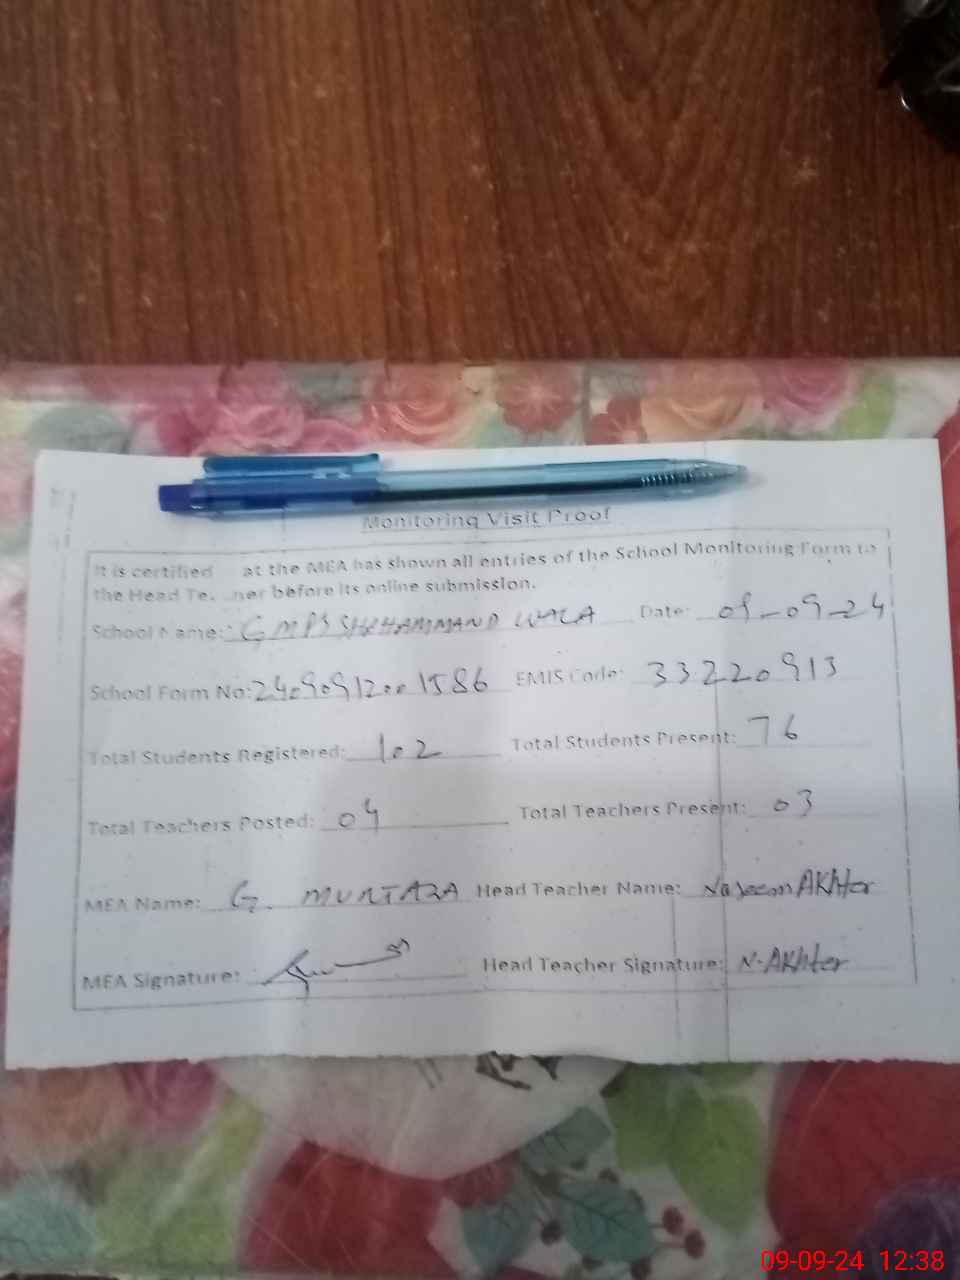 Monitoring Visit Proof
It is certified at the MEA has shown all entries of the School Monitoring Form to
the Head Te. ner before its online submission.
School Name: GMPS Date: 09-09-24
School Form No: 24090912001586 EMIS Code: 33220913
Total Students Registered: 102 Total Students Present: 76
Total Teachers Posted: 04 Total Teachers Present: 03
MEA Name: G. MURTAZA Head Teacher Name: Naseem AKhter
MEA Signature: Head Teacher Signature: N-AKhter
09-09-24 12:38